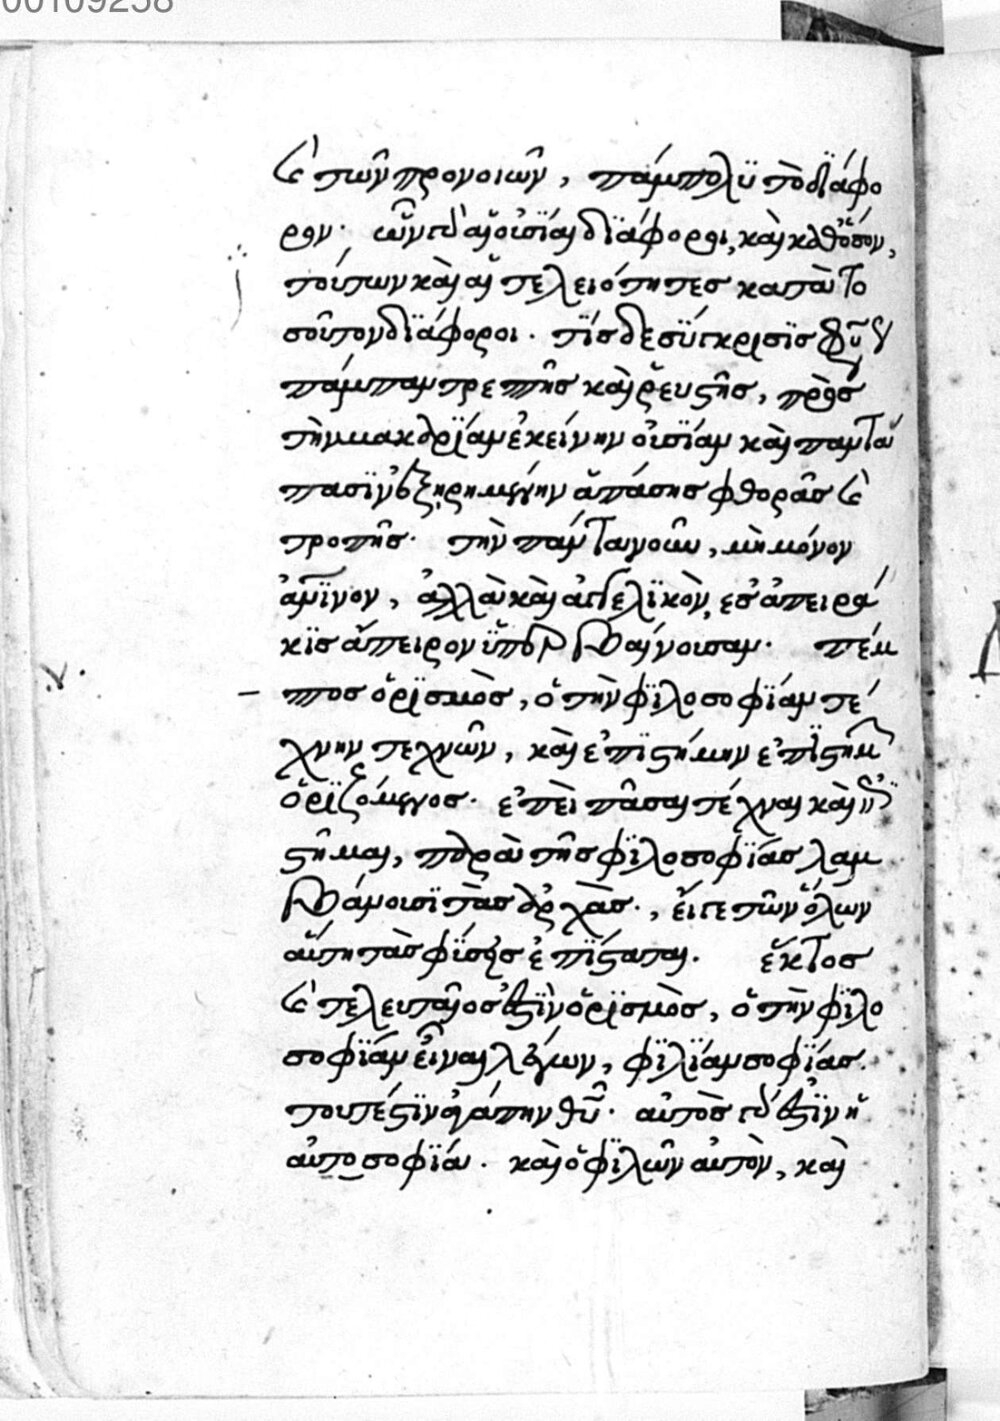 00109258
καὶ τῶν προνοιῶν, πάμπολϋ τὸ δϊάφο
ρον· ὧν γὰρ αἱ οὐσίαι δϊάφοροι, καὶ καθόσον,
τούτων καὶ αἱ τελειότητες κατὰ το
σοῦτον δϊάφοροι. τίς δὲ σύγκρισϊς
πάμπαν τρεπτῆς καὶ ῥευστῆς, πρὸς
τὴν μακαρΐαν ἐκείνην οὐσΐαν καὶ παντά
πασϊν ἐξῃρημένην ἁπάσης φθορᾶς καὶ
τροπῆς· τὴν πάντα νοῦν, μὴ μόνον
ἀλλὰ καὶ ἀγγελϊκὸν, ἐς ἀπειρά
κϊς ἄπειρον ὑπερβαίνουσαν· πέμ
πτος ὁρϊσμὸς, ὁ τὴν φϊλοσοφΐαν τέ
χνην τεχνῶν, καὶ ἐπϊστήμην ἐπϊστημῶν
ὁρϊζόμενος. ἐπεὶ πᾶσαι τέχναι καὶ ἐπϊ
στῆμαι, παρὰ τῆς φϊλοσοφΐας λαμ
βάνουσϊ τὰς ἀρχὰς., εἴτε τῶν ὅλων
αὕτη τὰς φύσεις ἐπΐσταται. ἕκτος
καὶ τελευταῖος ἐστϊν ὁρϊσμὸς, ὁ τὴν φϊλο
σοφΐαν εἶναι λέγων, φϊλΐαν σοφΐας.
τουτέστϊν ἀγάπην θῦ. αὐτὸς γάρ ἐστϊν ἡ
αὐτοσοφΐα. καὶ ὁ φϊλῶν αὐτὸν, καὶ